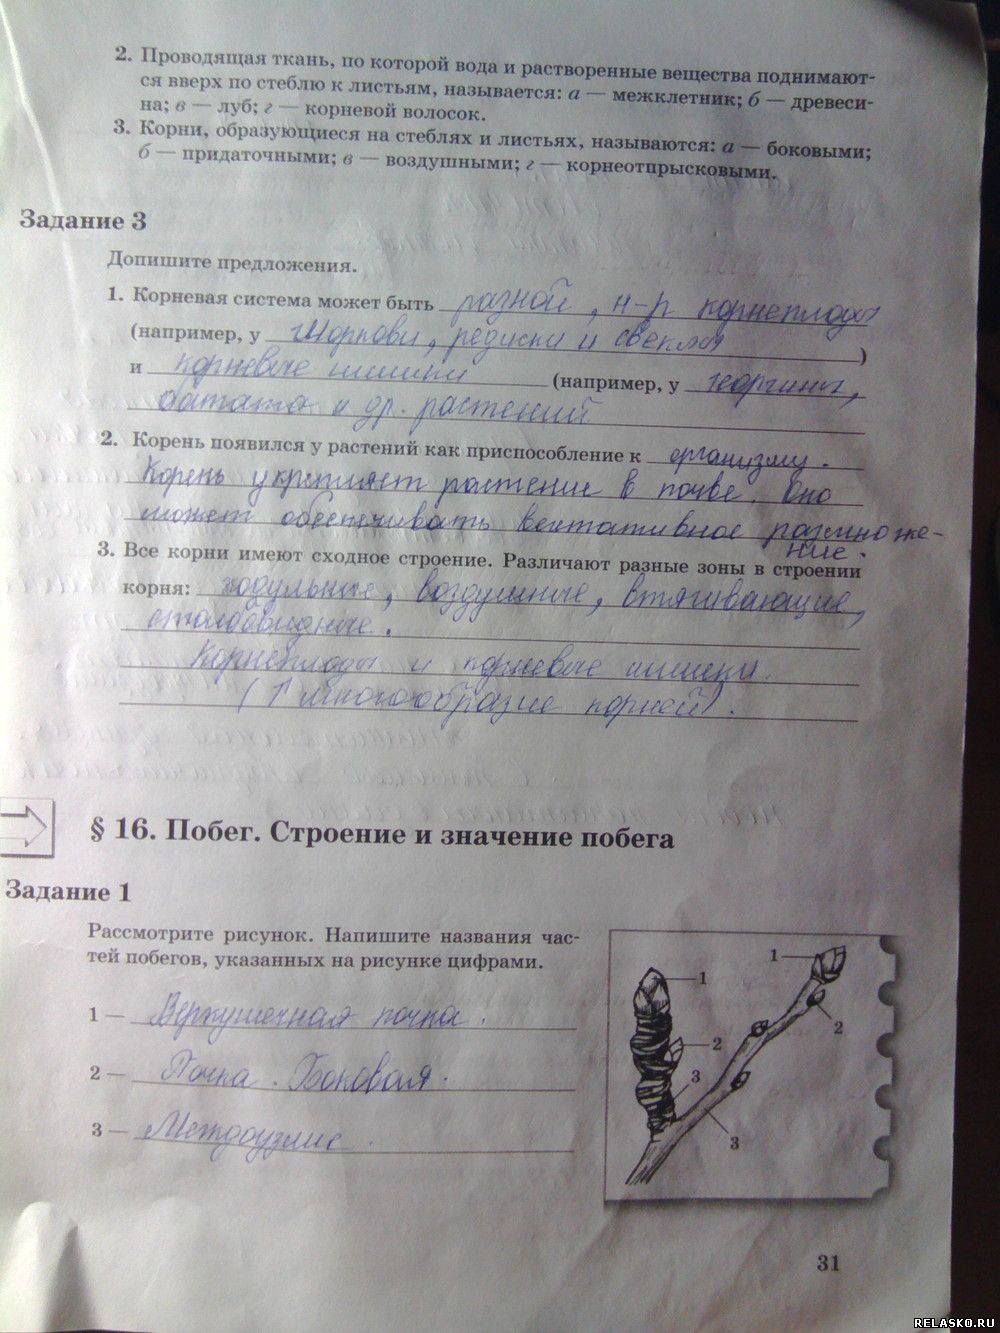 2. Проводящая ткань, по которой вода и растворенные вещества поднимают-
ся вверх по стеблю к листьям, называется: а — межклетник; б — древеси-
на; в — луб; г — корневой волосок.
3. Корни, образующиеся на стеблях и листьях, называются: а — боковыми;
б — придаточными; в — воздушными; г — корнеотпрысковыми.
Задание 3
Допишите предложения.
1. Корневая система может быть разной, н-р корнеплоды
(например, у моркови, редиски и свеклы )
и корневые шишки (например, у георгины,
батата и др. растений
2. Корень появился у растений как приспособление к организму.
Корень укрепляет растение в почве. Оно
может обеспечивать вегетативное размноже-
ние.
3. Все корни имеют сходное строение. Различают разные зоны в строении
корня: ходульные, воздушные, втягивающие,
столбовидные.
Корнеплоды и корневые шишки.
(↑ многообразие корней).
§ 16. Побег. Строение и значение побега
Задание 1
Рассмотрите рисунок. Напишите названия час-
тей побегов, указанных на рисунке цифрами.
1 — Верхушечная почка.
2 — Почка. Боковая.
3 — Междоузлие.
1
1
2
2
3
3
31
RELASKO.RU